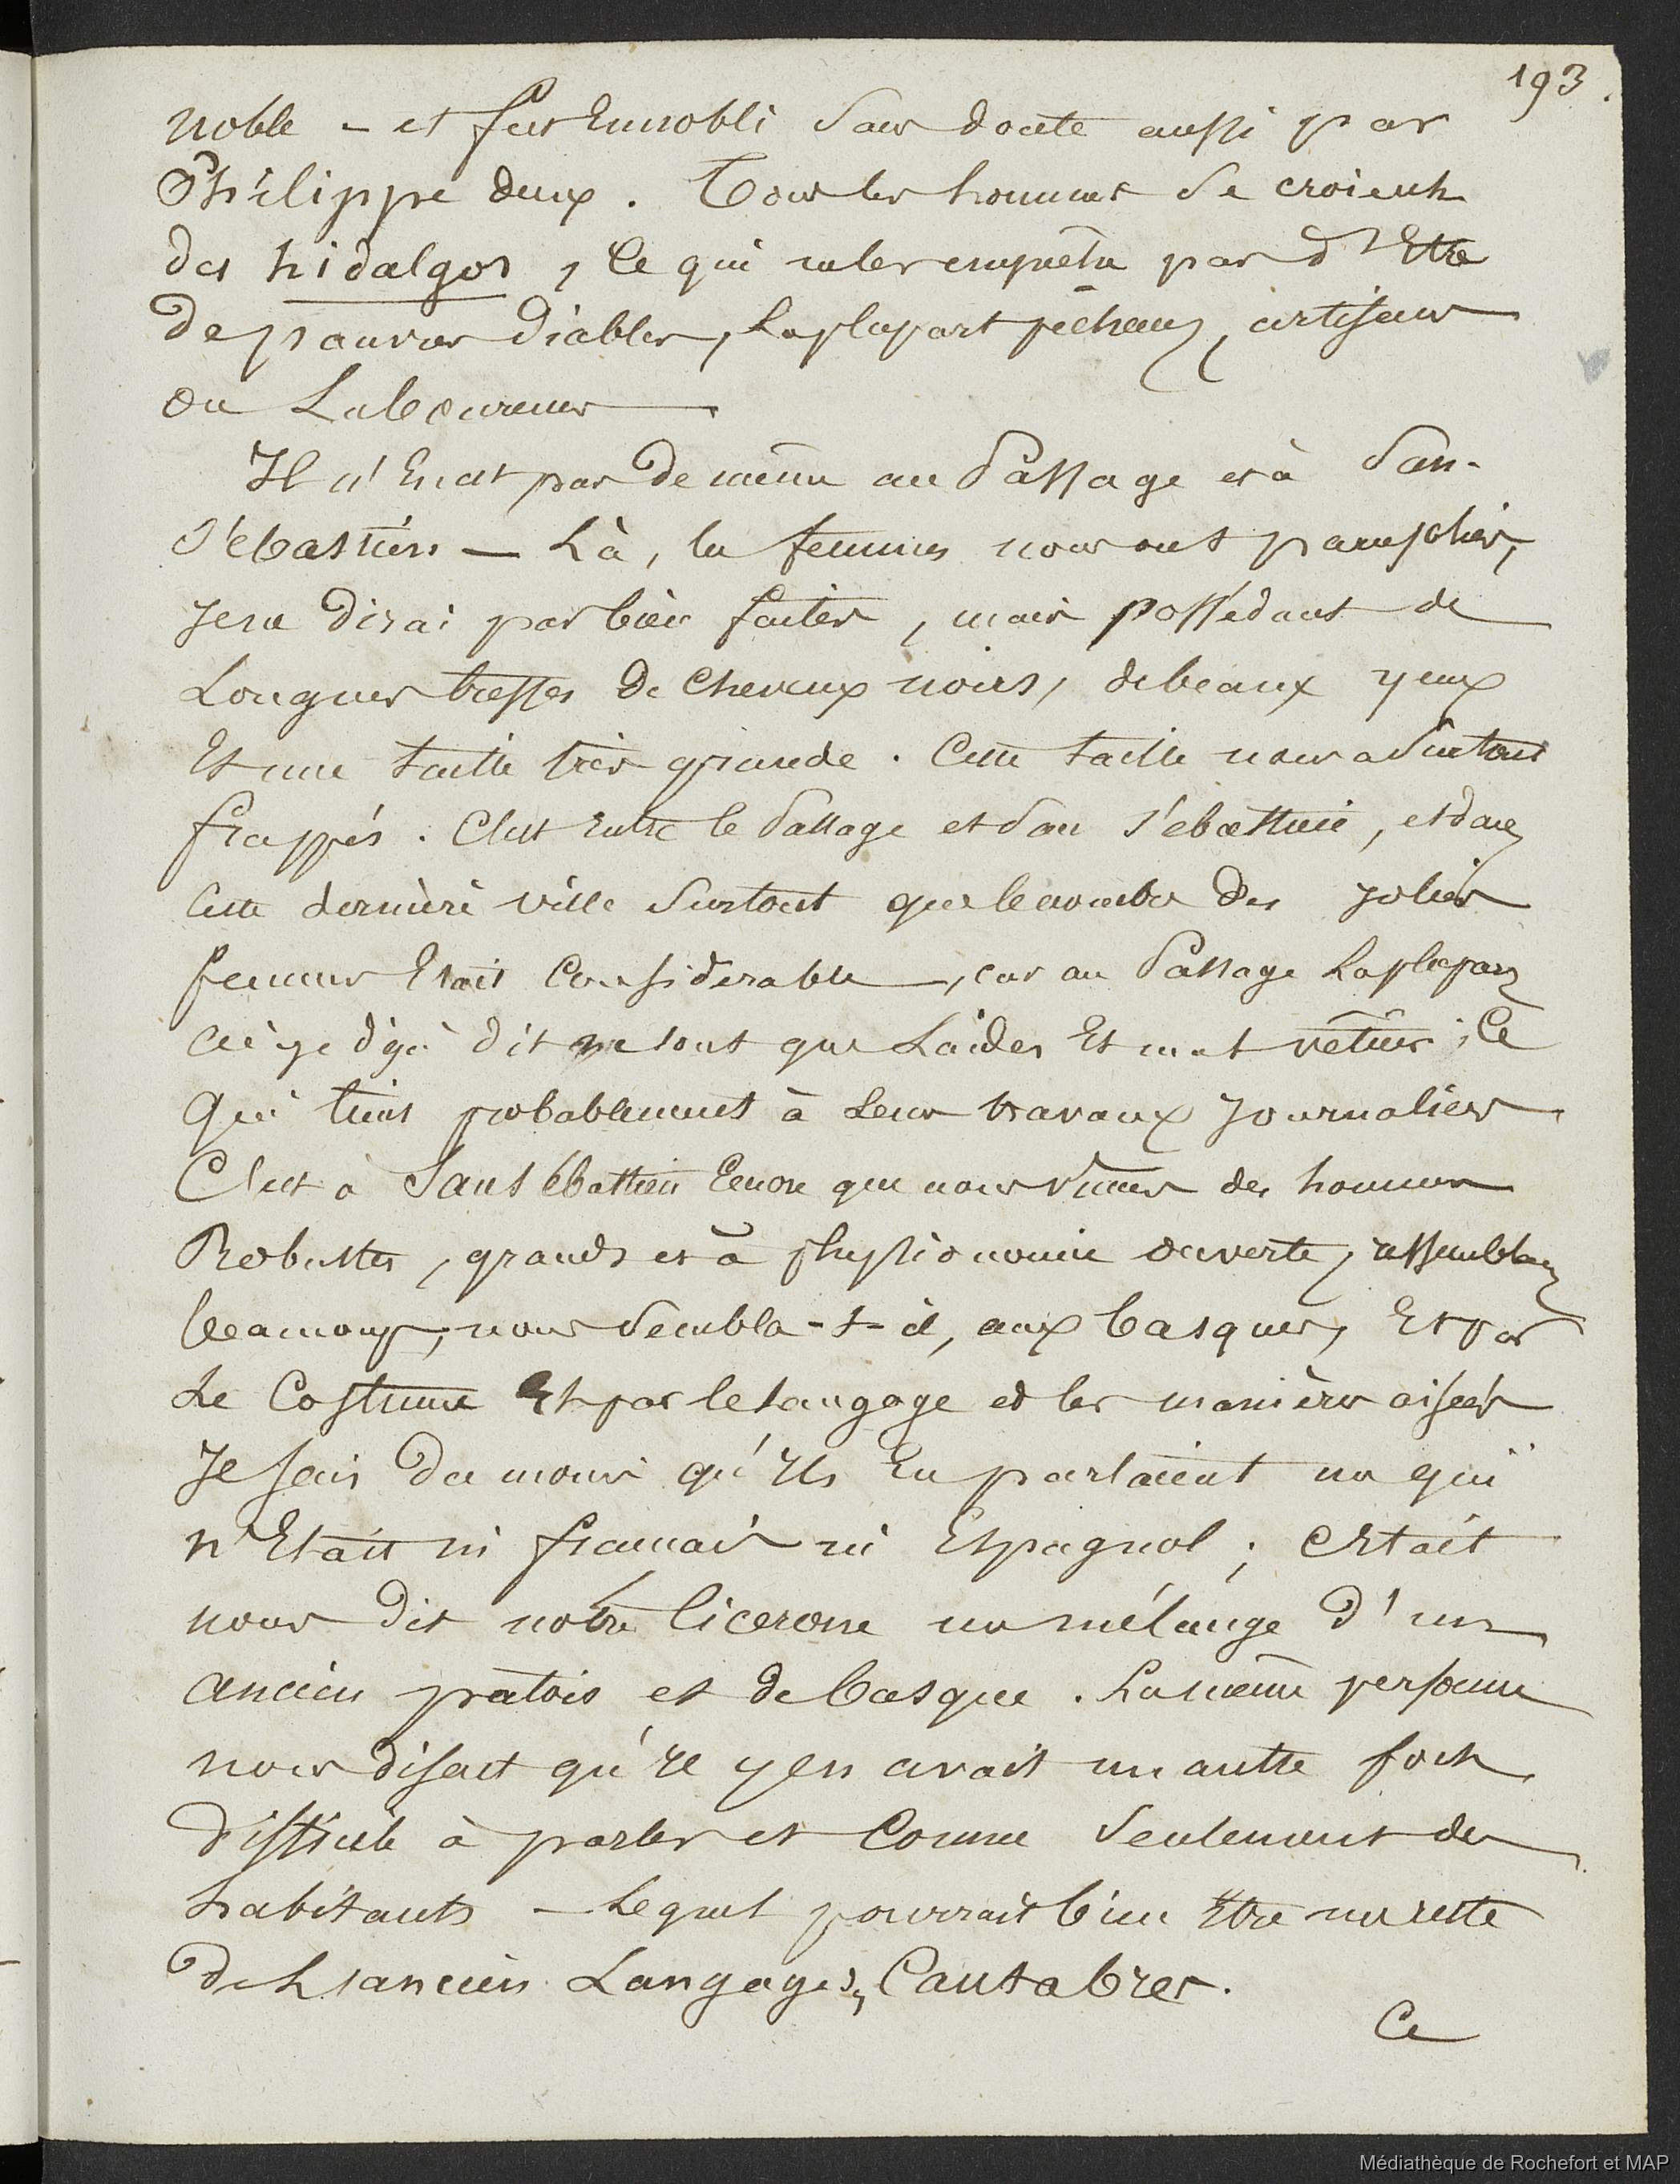 193.
noble - et fut Ennobli sans doute aussi par
Philippe deux. Tous les hommes se croient
des hidalgos, Ce qui ne les empêche pas d'Etre
de pauvres diables, la plupart pêcheurs, artisans
ou Laboureurs
Il n'En est pas de même au Passage et à San-
Sébastien — Là, les femmes nous ont paru jolies,
je ne dirai pas bien faites, mais possédant de
Longues tresses de cheveux noirs, de beaux yeux
Et une taille très grande. Cette taille nous a surtout
frappés. C'est Entre le Passage et San Sébastien, et dans
Cette dernière ville surtout que le nombre des jolies
femmes Etait Considérable, car au Passage La plupart
ai-je déjà dit ne sont que Laides Et mal vêtues; Ce
qui tient probablement à Leurs travaux journaliers
C'est à San Sébastien Encore que nous vîmes des hommes
Robustes, grands et à physionomie ouverte, ressemblant
beaucoup, nous sembla-t-il, aux basques, Et par
Le Costume Et par le langage et les manières aisées
Je sais du moins qu'Ils En parlaient un qui
n'Etait ni français ni Espagnol; C'Etait
nous dit notre Cicerone un mélange d'un
ancien patois et de basque. La même personne
nous disait qu'Il y en avait un autre fort
difficile à parler et Connu seulement des
habitants — Lequel pourrait bien Etre un reste
de L'ancien Langages, Cantabres.
Ce
Médiathèque de Rochefort et MAP